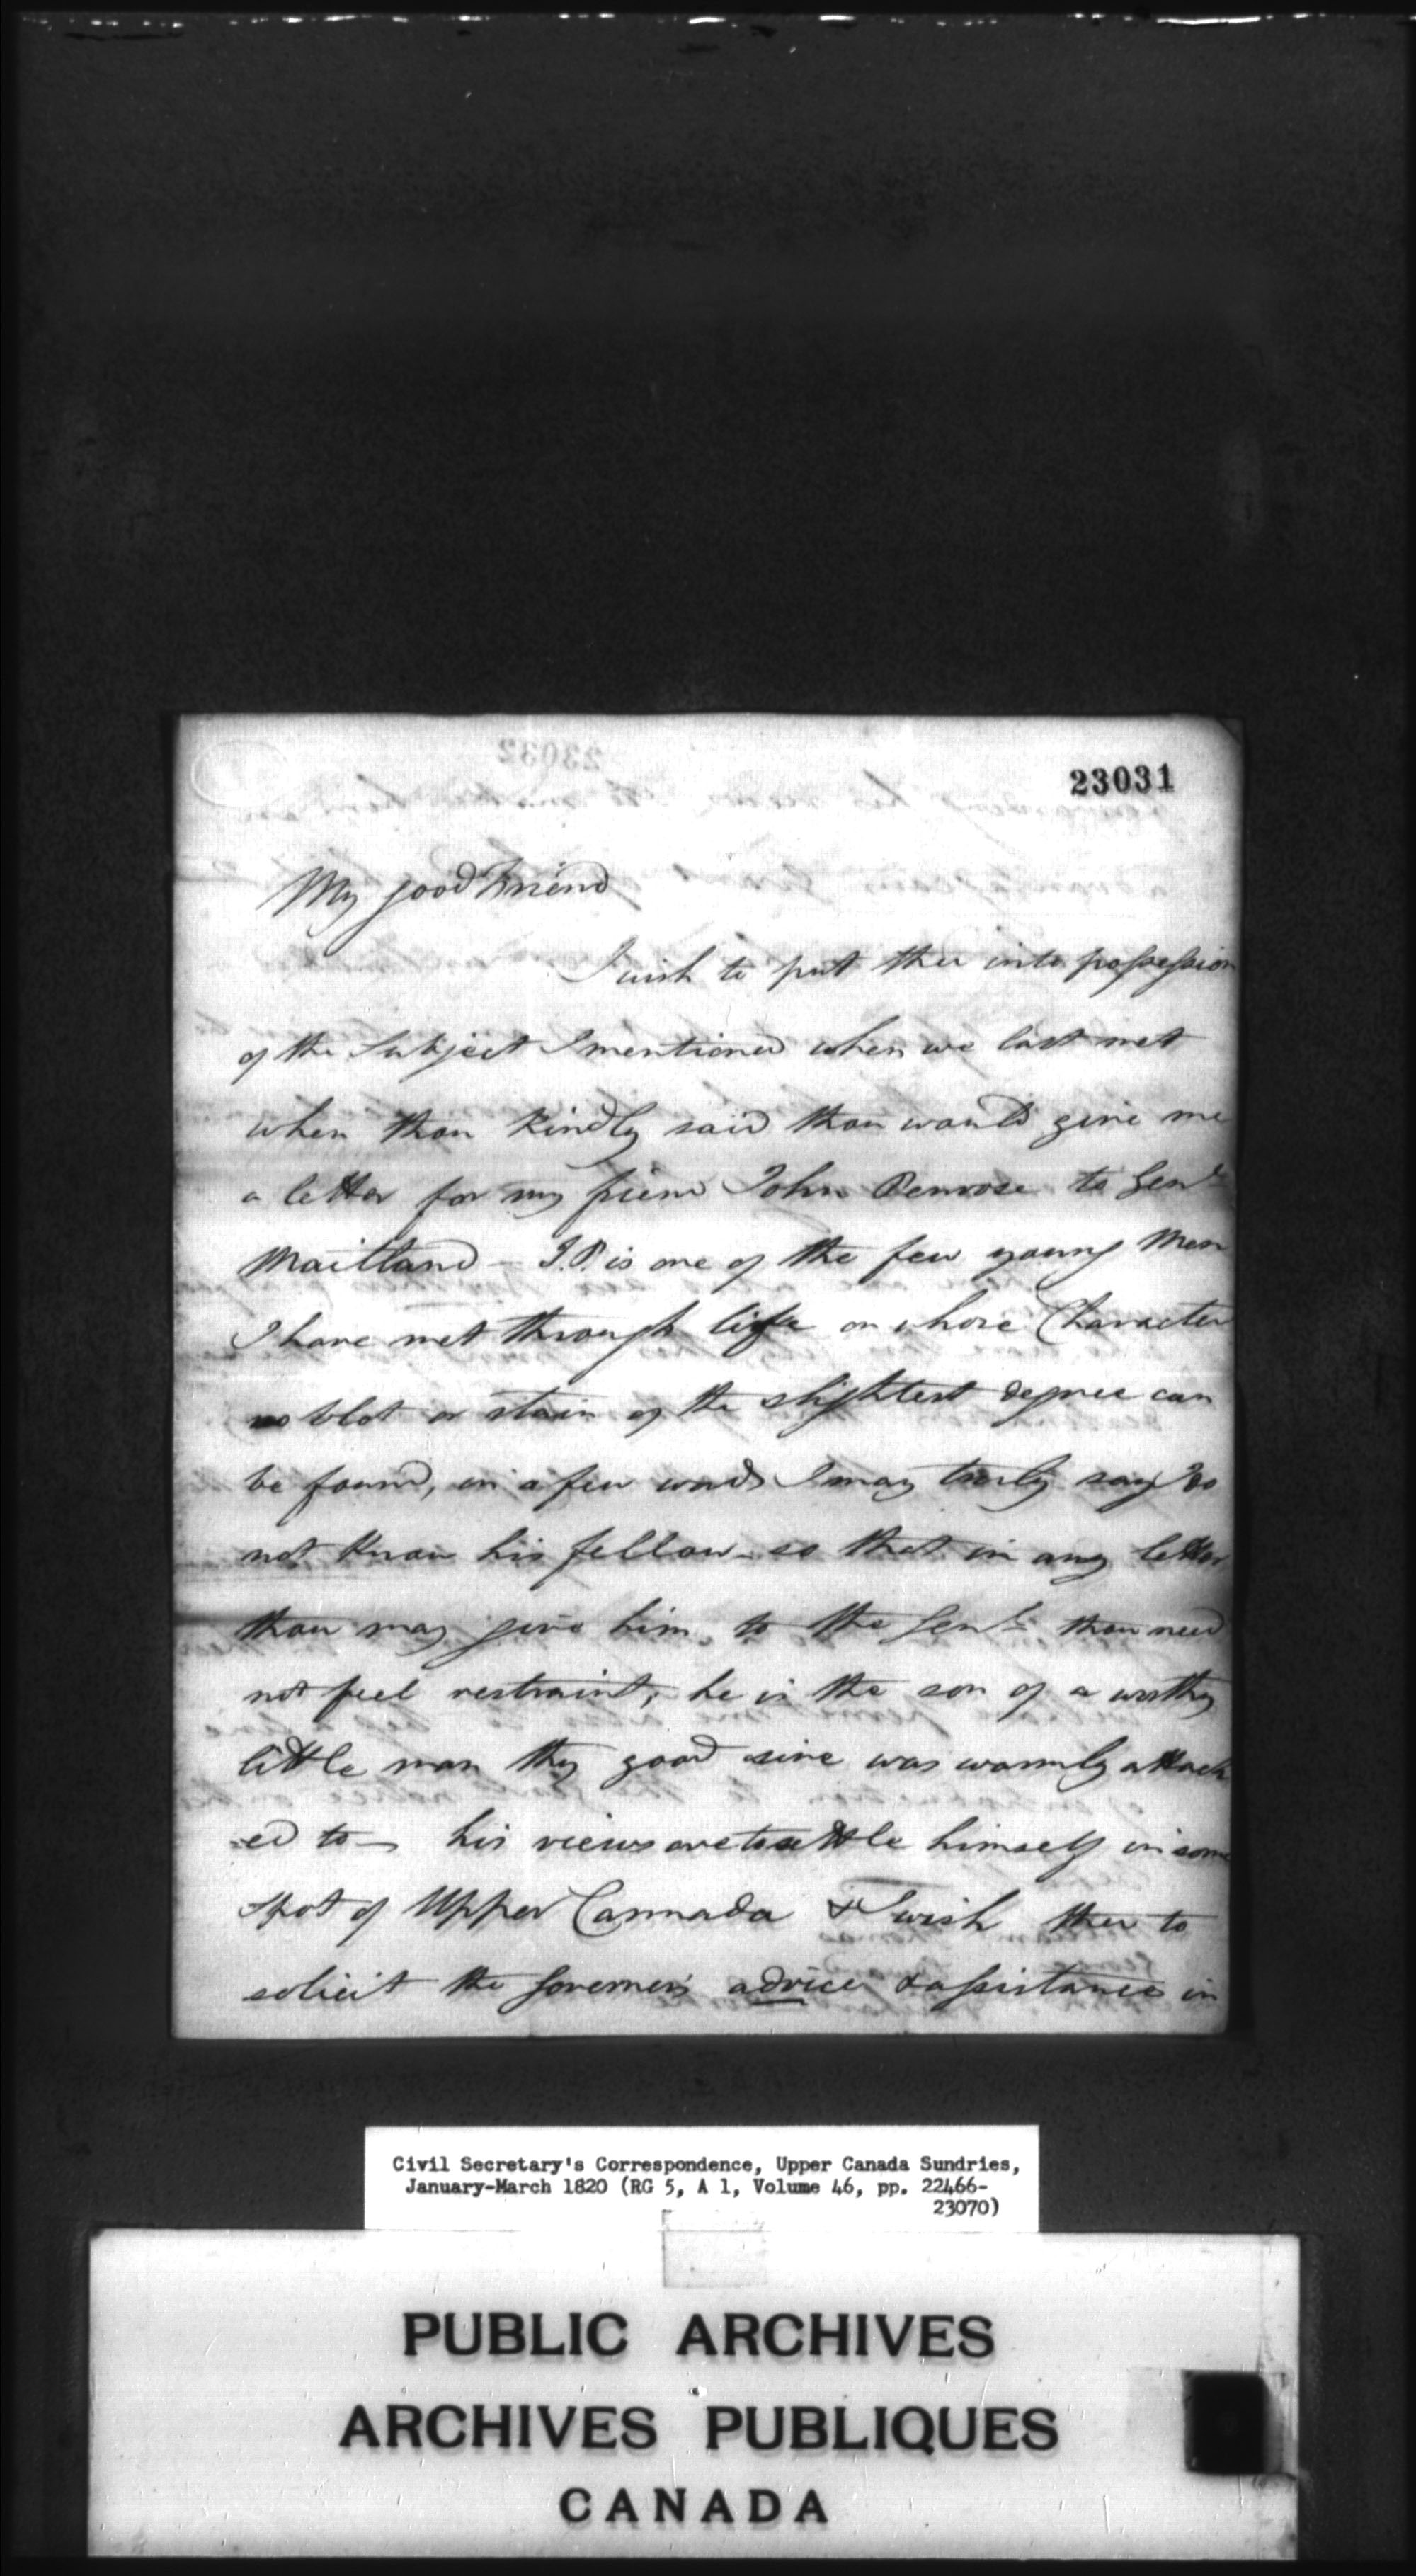 23031
My good Friend
I wish to put thee into possession
of the Subject I mentioned when we last met
when thou kindly said thou would give me
a letter for my friend John Penrose to Genl
Maitland - J.P. is one of the few young Men
I have met through life on whose Character
no blot or stain of the slightest degree can
be found, in a few words I may truly say I do
not know his fellow - so that in any letter
thou may give him to the Genl. thou need
not feel restraint, he is the son of a worthy
little man thy good sire was warmly attach
=ed to - his views are to settle himself in some
spot of Upper Cannada & I wish thee to
solicit the Governers advice & assistance in
Civil Secretary's Correspondence, Upper Canada Sundries,
January-March 1820 (RG 5, A 1, Volume 46, pp. 22466-
23070)
PUBLIC ARCHIVES
ARCHIVES PUBLIQUES
CANADA